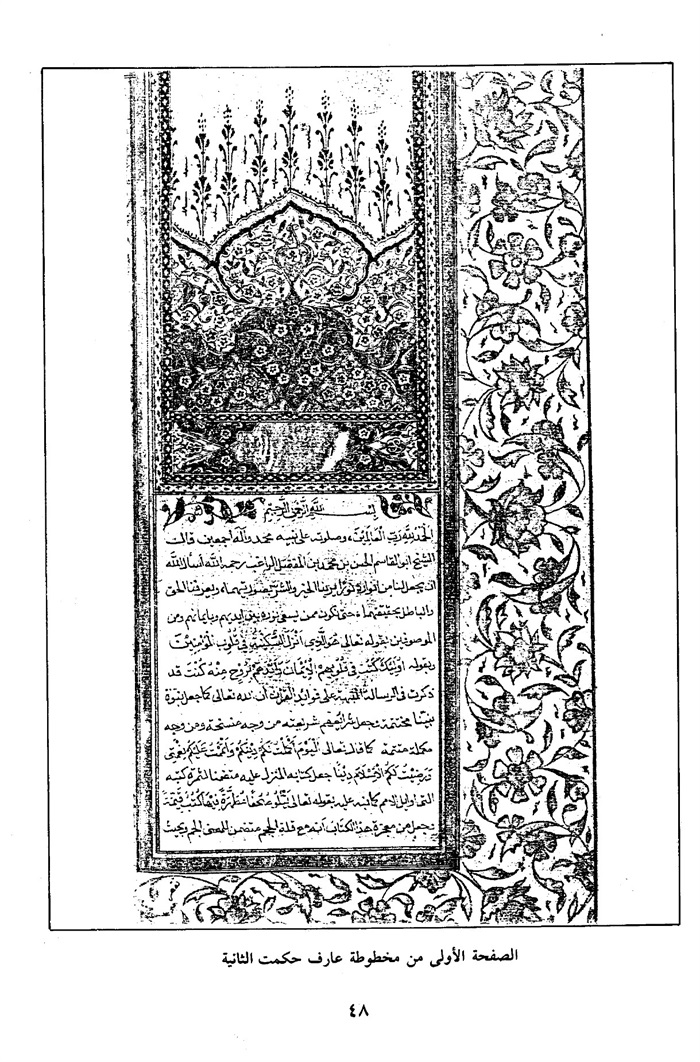 بسم الله الرحمن الرحيم
الحمد لله رب العالمين وصلوته على نبيه محمد وآله أجمعين قال
الشيخ ابو القاسم الحسين بن محمد بن المفضل الراغب رحمه الله أسأل الله
أن يجعل لنا من انواره نورا يرينا الخير والشر بصورتيهما ويعرفنا الحق
والباطل بحقيقتهما حتى نكون ممن يسعى نوره بين ايديهم وبايمانهم ومن
الموصوفين بقوله تعالى هو الذي أنزل السكينة في قلوب المؤمنين
وبقوله اولئك كتب في قلوبهم الايمان وأيدهم بروح منه كنت قد
ذكرت في الرسالة المنبهة على فوائد القرآن أن الله تعالى كما جعل نبوة
نبينا مختتمة وجعل شرائعهم شريعته من وجه منتسخة ومن وجه
مكملة متممة كما قال تعالى اليوم أكملت لكم دينكم وأتممت عليكم نعمتي
ورضيت لكم الاسلام دينا جعل كتابه المنزل عليه متضمنا لثمرة كتبه
التي اولاها اوائل الامم كما نبه عليه بقوله تعالى يتلو صحفا مطهرة فيها كتب قيمة
وجعل من معجزة هذا الكتاب أنه مع قلة الحجم متضمن للمعنى الجم بحيث
الصفحة الأولى من مخطوطة عارف حكمت الثانية
٤٨